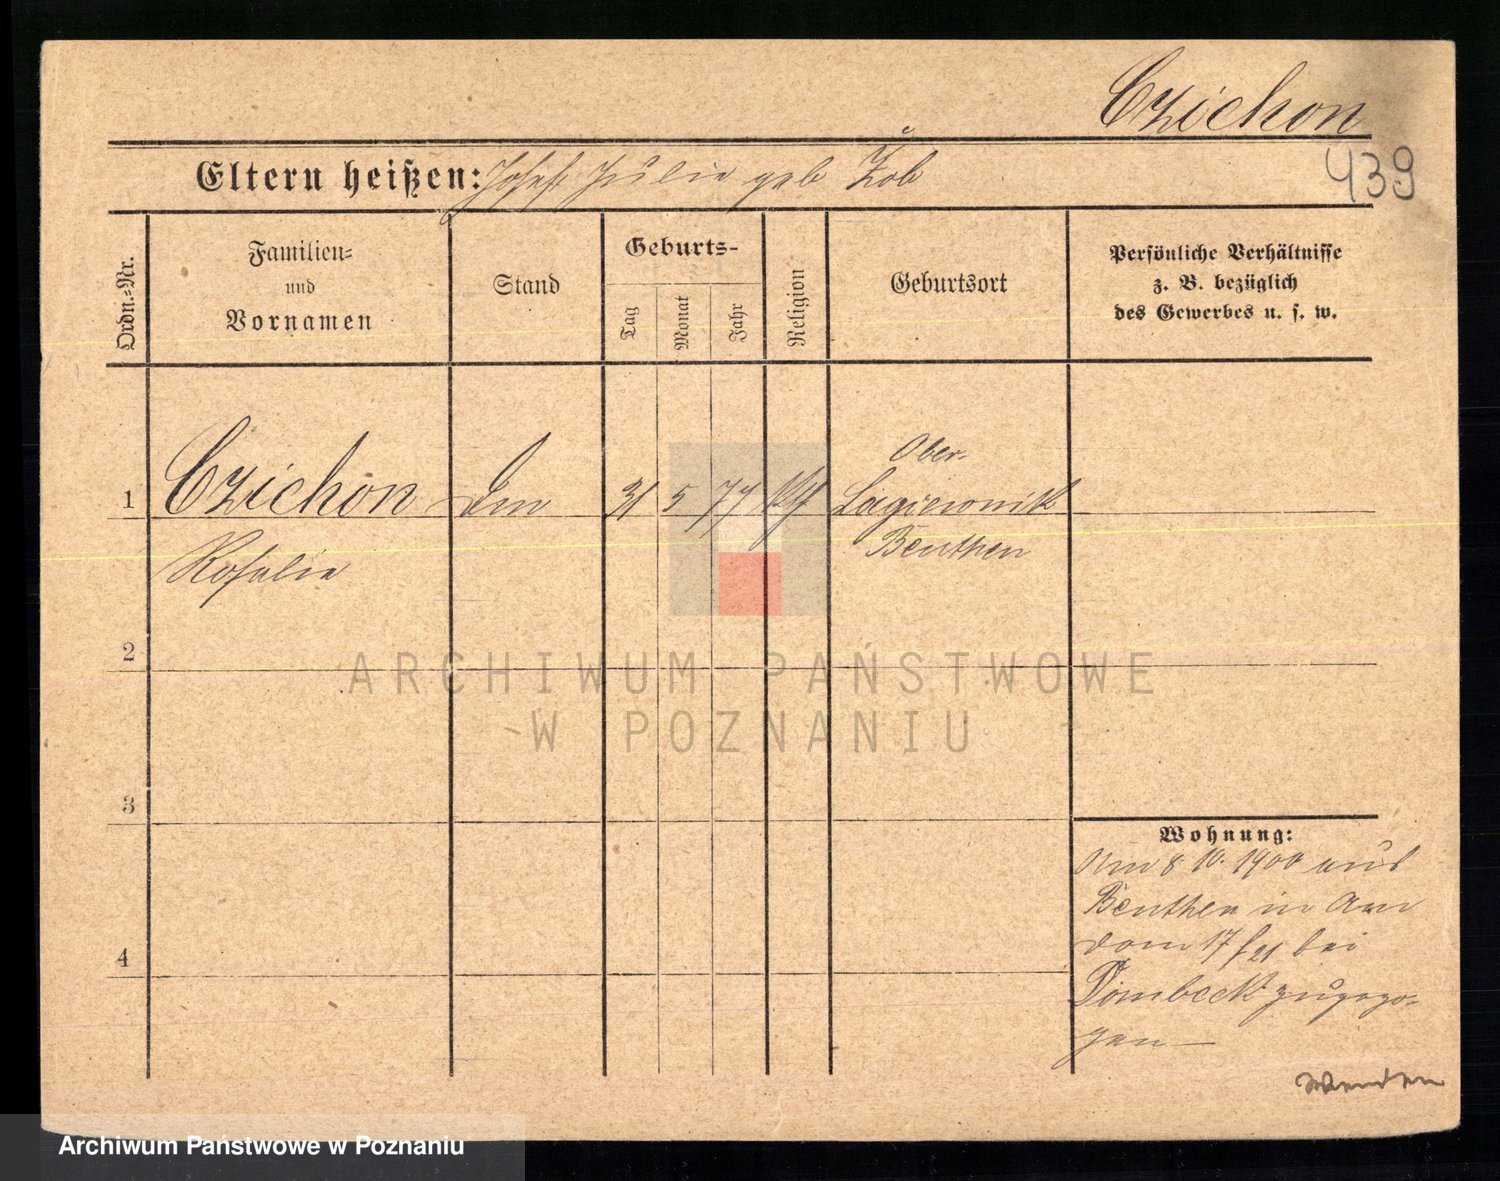 Czichon
439
Eltern heißen: Josef Julie geb Zob
Ordn.-Nr.
Familien-
und
Vornamen
Stand
Geburts-
Tag
Monat
Jahr
Religion
Geburtsort
Persönliche Verhältnisse
z. B. bezüglich
des Gewerbes u. s. w.
1 Czichon 31 5 77 kth
Ober-
Lagiewnik
Beuthen
Rosalie
2
3
4
Wohnung:
Am 8 10. 1900 aus
Beuthen in
17/21 bei
Dombeck zugezo-
gen —
Wenden
ARCHIWUM PAŃSTWOWE
W POZNANIU
Archiwum Państwowe w Poznaniu